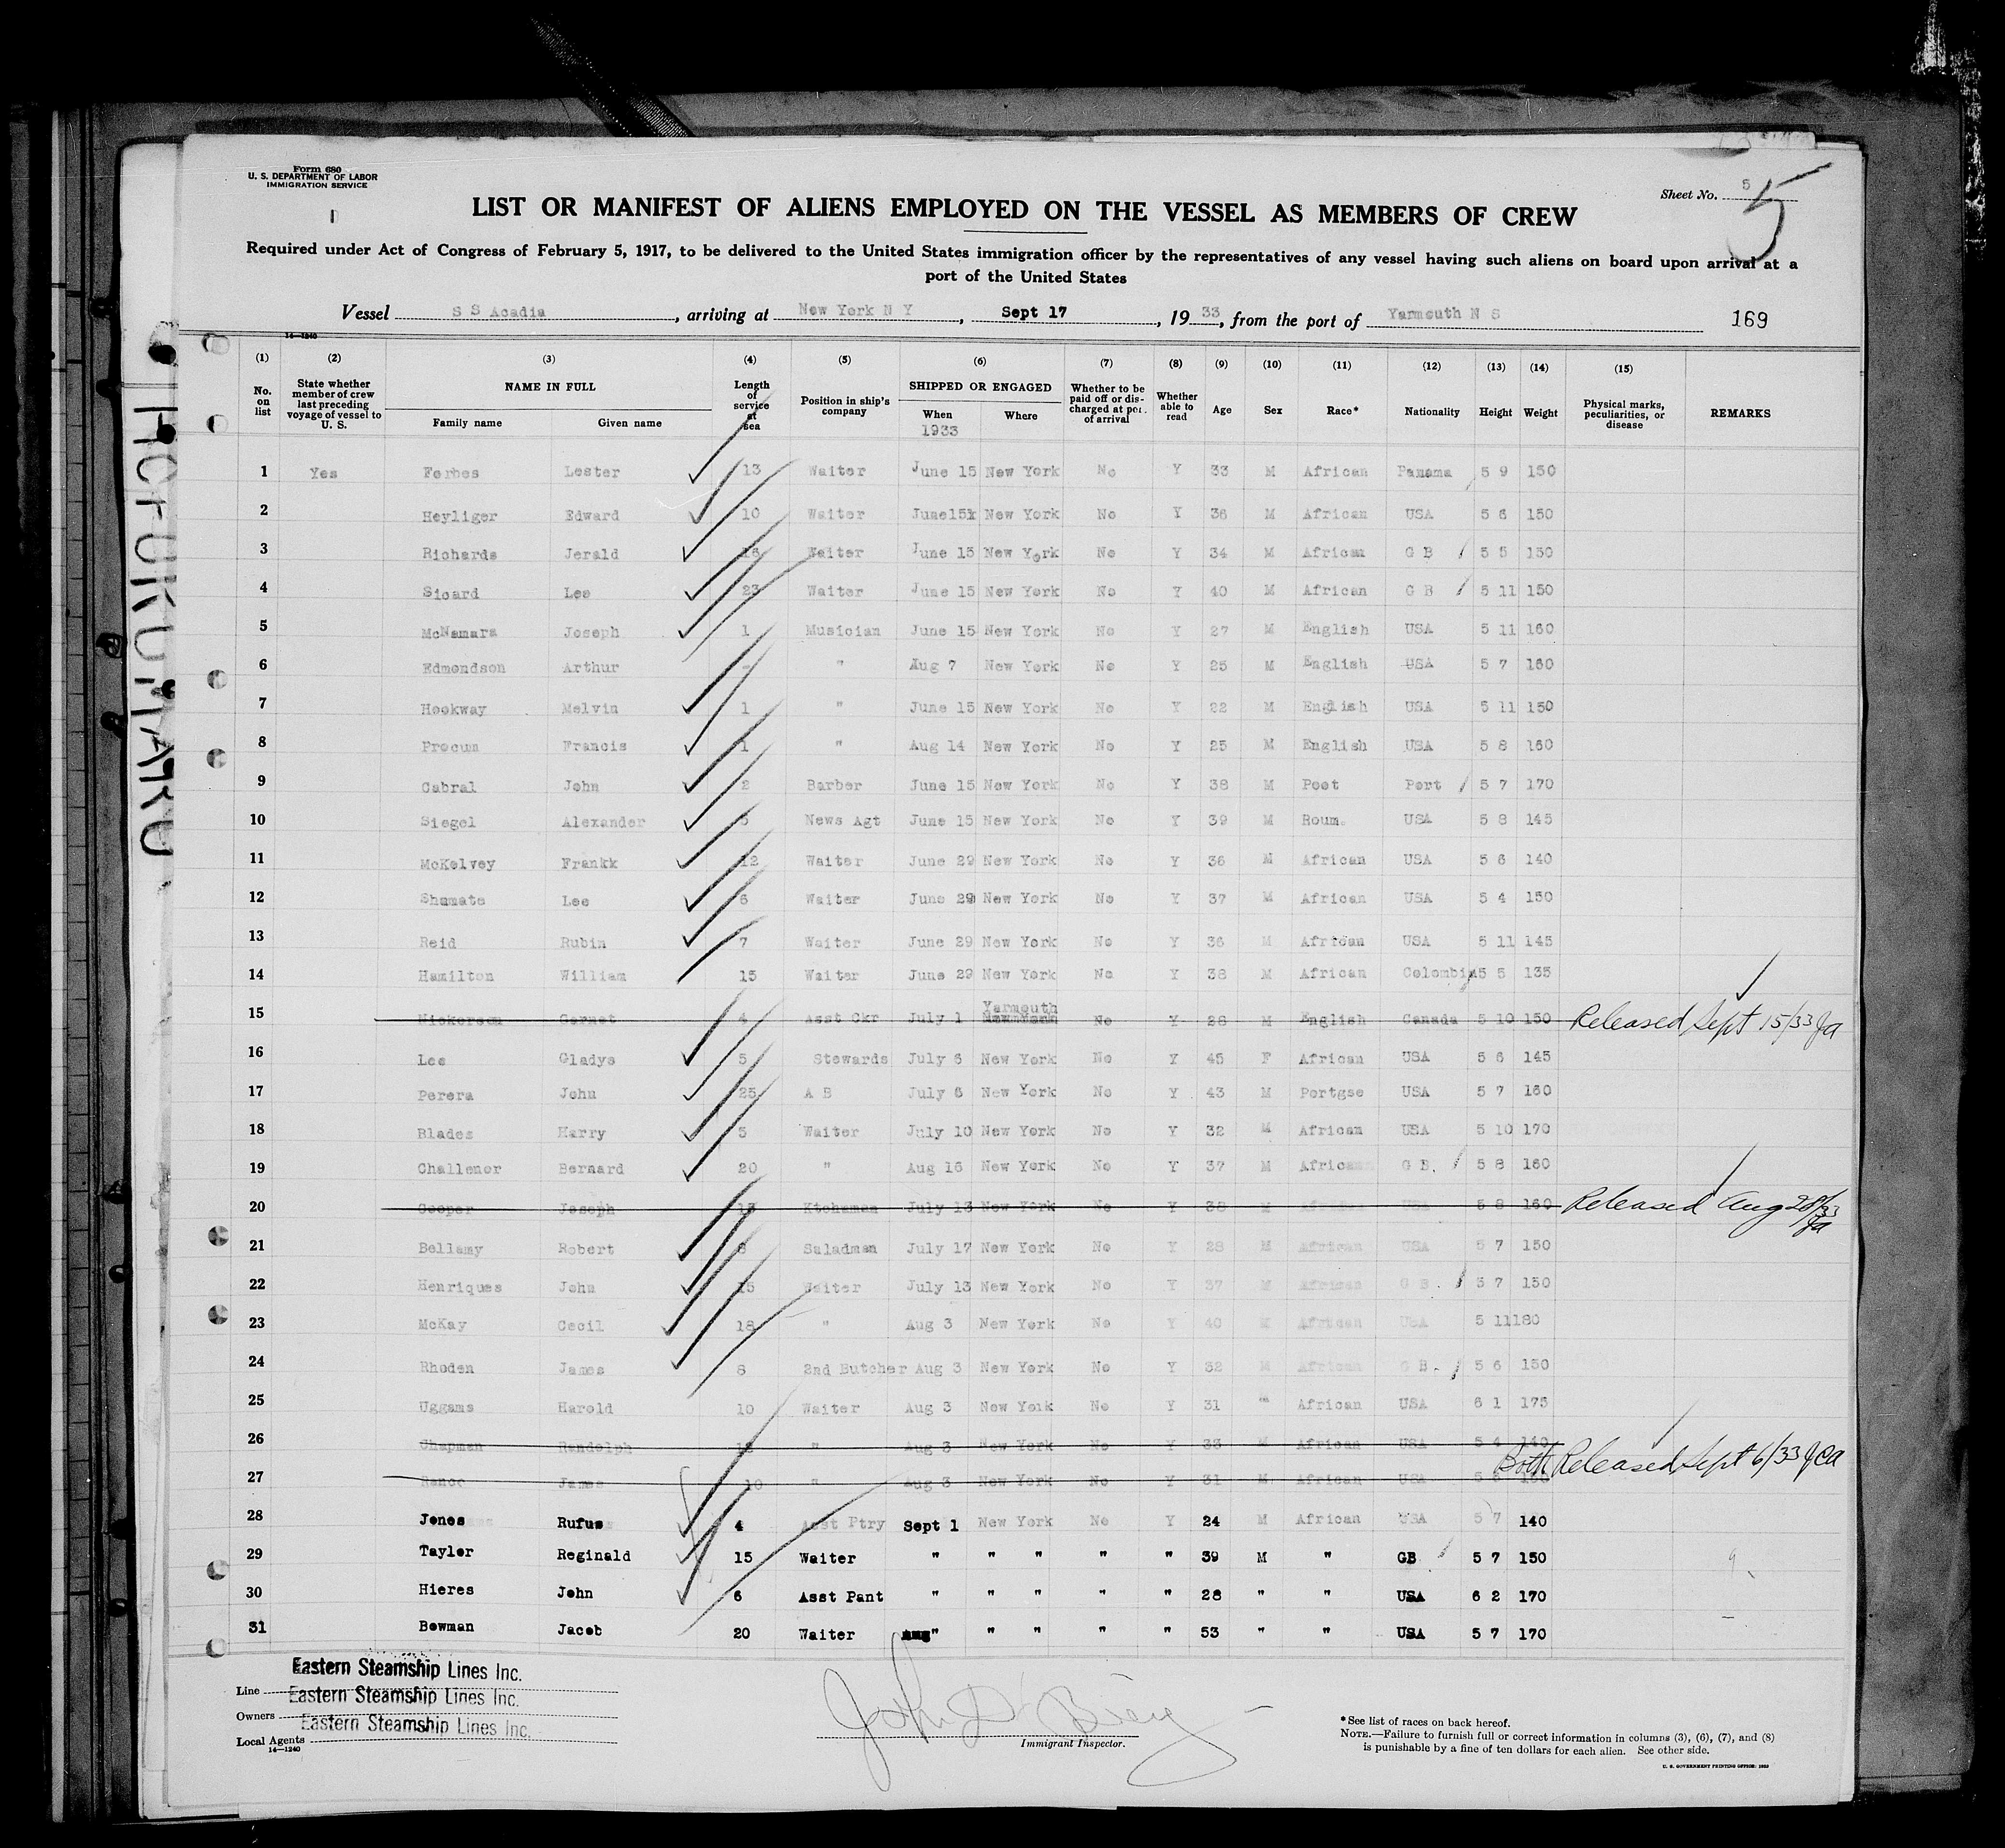 Form 680
U. S. DEPARTMENT OF LABOR
IMMIGRATION SERVICE
Sheet No. 5
5
LIST OR MANIFEST OF ALIENS EMPLOYED ON THE VESSEL AS MEMBERS OF CREW
Required under Act of Congress of February 5, 1917, to be delivered to the United States immigration officer by the representatives of any vessel having such aliens on board upon arrival at a
port of the United States
Vessel S S Acadia, arriving at New York N Y, Sept 17, 19 33, from the port of Yarmouth N S 169
14—1240
(1) (2) (3) (4) (5) (6) (7) (8) (9) (10) (11) (12) (13) (14) (15)
No. on list State whether member of crew last preceding voyage of vessel to U. S. NAME IN FULL Family name Given name Length of service at sea Position in ship's company SHIPPED OR ENGAGED When 1933 Where Whether to be paid off or discharged at port of arrival Whether able to read Age Sex Race* Nationality Height Weight Physical marks, peculiarities, or disease REMARKS
1 Yes Forbes Lester 13 Waiter June 15 New York No Y 33 M African Panama 5 9 150
2 Heyliger Edward 10 Waiter June15x New York No Y 36 M African USA 5 6 150
3 Richards Jerald 16 Waiter June 15 New York No Y 34 M African G B 5 5 150
4 Sicard Lee 23 Waiter June 15 New York No Y 40 M African G B 5 11 150
5 McNamara Joseph 1 Musician June 15 New York No Y 27 M English USA 5 11 160
6 Edmondson Arthur - " Aug 7 New York No Y 25 M English USA 5 7 160
7 Hookway Melvin 1 " June 15 New York No Y 22 M English USA 5 11 150
8 Procum Francis 1 " Aug 14 New York No Y 25 M English USA 5 8 160
9 Cabral John 2 Barber June 15 New York No Y 38 M Poet Port 5 7 170
10 Siegel Alexander 5 News Agt June 15 New York No Y 39 M Roum. USA 5 8 145
11 McKelvey Frankk 12 Waiter June 29 New York No Y 36 M African USA 5 6 140
12 Shumate Lee 6 Waiter June 29 New York No Y 37 M African USA 5 4 150
13 Reid Rubin 7 Waiter June 29 New York No Y 36 M African USA 5 11 145
14 Hamilton William 15 Waiter June 29 New York No Y 38 M African Colombia 5 5 135
15 Nickerson Garnet 4 Asst Ckr July 1 Yarmouth No Y 26 M English Canada 5 10 150 Released Sept 15/33 Ja
16 Lee Gladys 5 Stewards July 6 New York No Y 45 F African USA 5 6 145
17 Perera John 25 A B July 6 New York No Y 43 M Portgse USA 5 7 160
18 Blades Harry 5 Waiter July 10 New York No Y 32 M African USA 5 10 170
19 Challenor Bernard 20 " Aug 16 New York No Y 37 M African G B. 5 8 160
20 Cooper Joseph Ktchnman July 13 New York No Y 38 M African USA 5 8 160 Released Aug 28/33 Ja
21 Bellamy Robert 8 Saladman July 17 New York No Y 28 M African USA 5 7 150
22 Henriques John 15 Waiter July 13 New York No Y 37 M African G B. 5 7 150
23 McKay Cecil 18 " Aug 3 New York No Y 40 M African USA 5 11 180
24 Rhoden James 8 2nd Butcher Aug 3 New York No Y 32 M African G B. 5 6 150
25 Uggams Harold 10 Waiter Aug 3 New York No Y 31 " African USA 6 1 175
26 Chapman Randolph 12 " Aug 3 New York No Y 33 M African USA 5 4 140
Both Released Sept 6/33 JCa
27 James 10 " Aug 3 New York No Y 31 M African USA
28 Jones Rufus 4 Asst Ptry Sept 1 New York No Y 24 M African USA 5 7 140
29 Tayler Reginald 15 Waiter " " " " " 39 M " GB 5 7 150
30 Hieres John 6 Asst Pant " " " " " 28 " " USA 6 2 170
31 Bowman Jacob 20 Waiter " " " " " 53 " " USA 5 7 170
Line Eastern Steamship Lines Inc.
Owners Eastern Steamship Lines Inc.
Local Agents Eastern Steamship Lines Inc.
14—1240
Immigrant Inspector.
* See list of races on back hereof.
NOTE.—Failure to furnish full or correct information in columns (3), (6), (7), and (8)
is punishable by a fine of ten dollars for each alien. See other side.
U. S. GOVERNMENT PRINTING OFFICE:
HOFUKU MARU